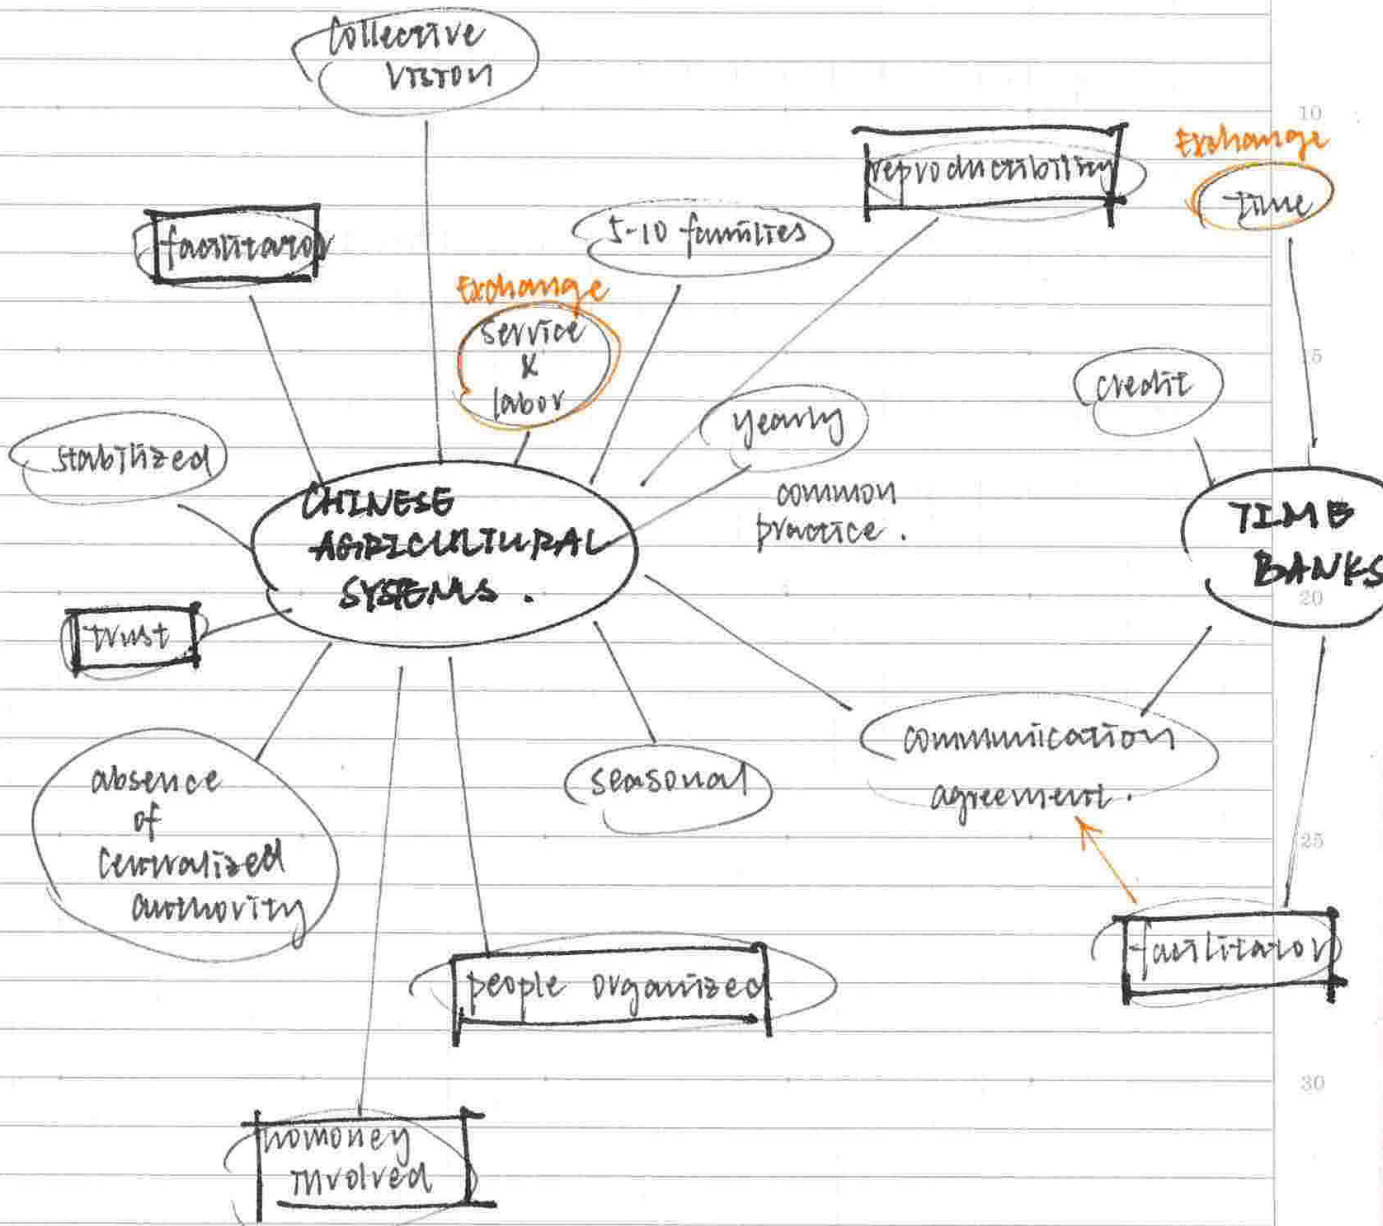 Collective
vision
10
Exchange
time
reproductibility
facilitator
5-10 families
Exchange
service
&
labor
5
credit
yearly
common
practice.
stabilized
CHINESE
AGRICULTURAL
SYSTEMS.
TIME
BANKS
20
trust
communication
agreement.
seasonal
absence
of
centralized
authority
25
facilitator
people organized
30
no money
involved